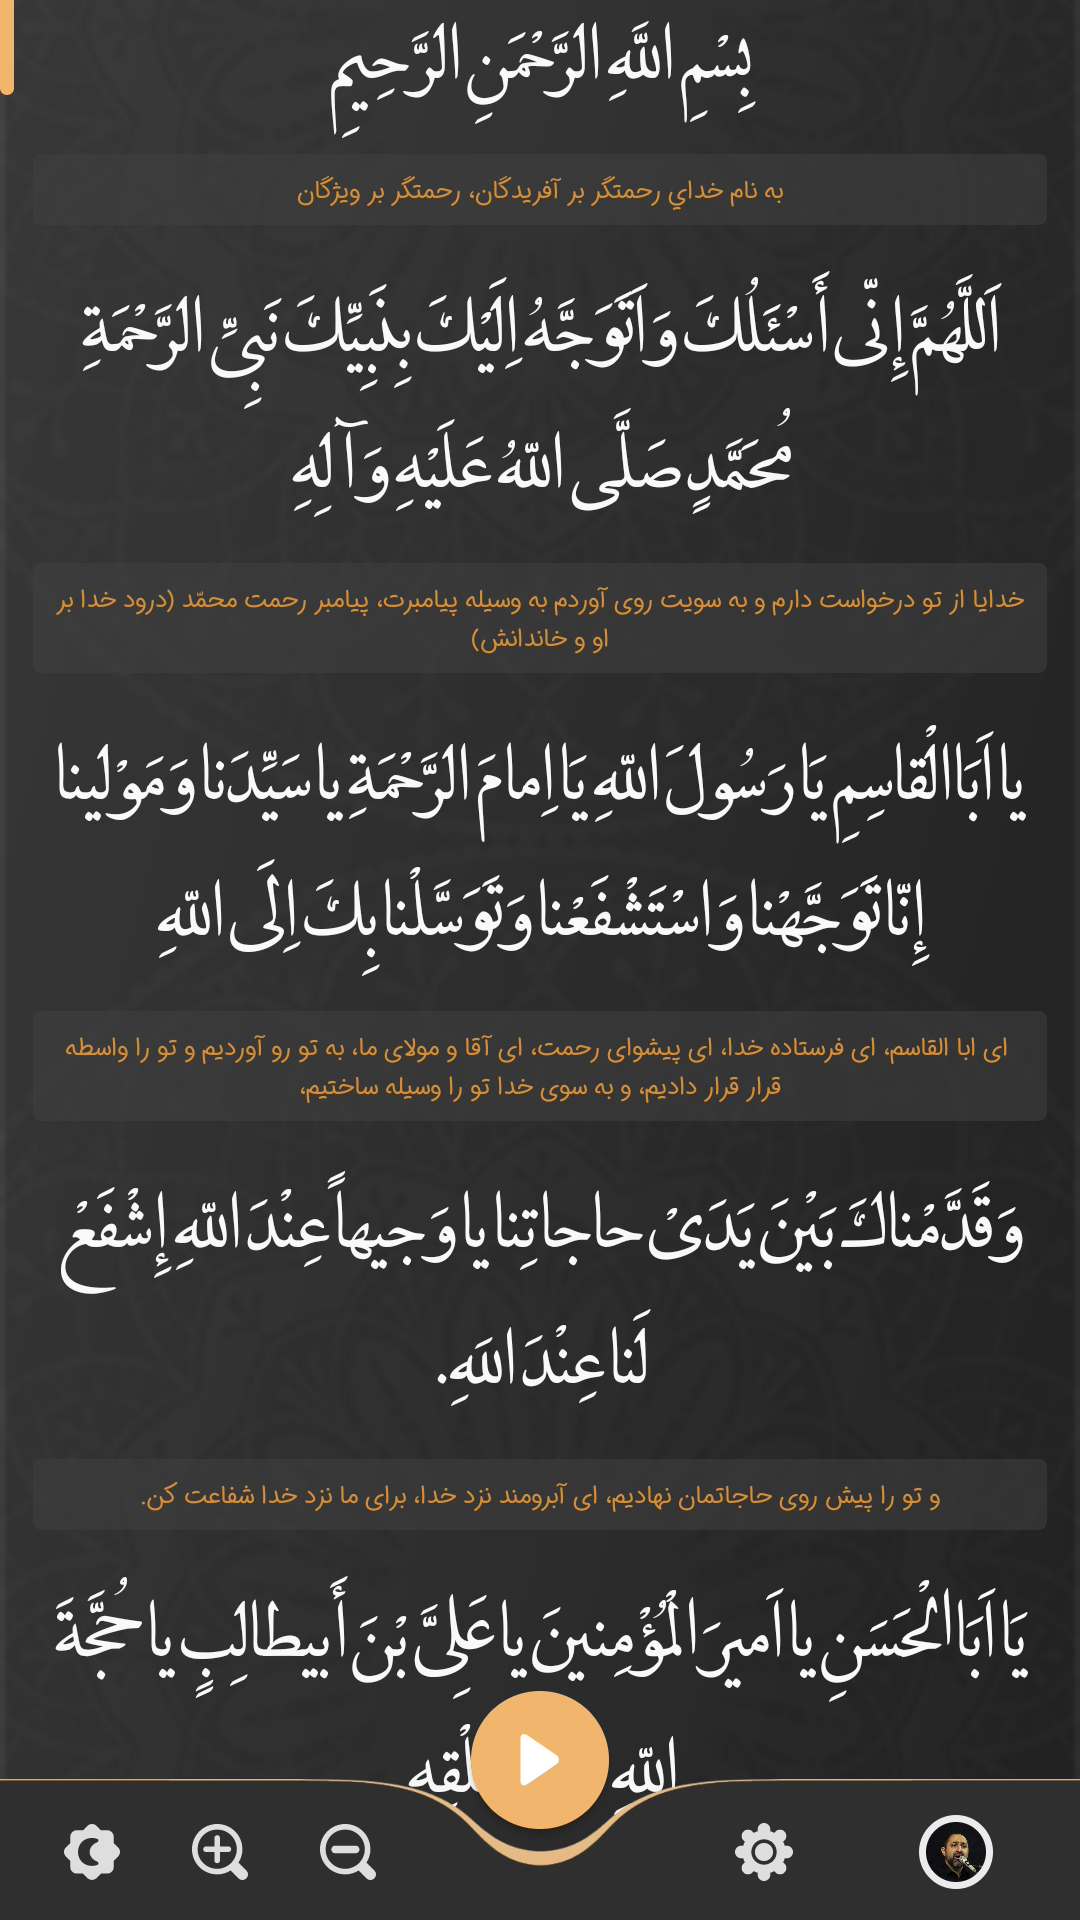 بِسْمِ اللَّهِ الرَّحْمَنِ الرَّحِيمِ
به نام خداي رحمتگر بر آفريدگان، رحمتگر بر ويژگان
اَللَّهُمَّ إِنّى أَسْئَلُكَ وَ اَتَوَجَّهُ اِلَيْكَ بِنَبِيِّكَ نَبِىِّ الرَّحْمَةِ
مُحَمَّدٍ صَلَّى اللّهُ عَلَيْهِ وَ آلِهِ
خدایا از تو درخواست دارم و به سویت روی آوردم به وسیله پیامبرت، پیامبر رحمت محمّد (درود خدا بر
او و خاندانش)
يا اَبَا الْقاسِمِ يَا رَسُولَ اللّهِ يَا اِمامَ الرَّحْمَةِ يا سَيِّدَنا وَ مَوْلينا
إِنّا تَوَجَّهْنا وَ اسْتَشْفَعْنا وَ تَوَسَّلْنا بِكَ اِلَى اللّهِ
ای ابا القاسم، ای فرستاده خدا، ای پیشوای رحمت، ای آقا و مولای ما، به تو رو آوردیم و تو را واسطه
قرار قرار دادیم، و به سوی خدا تو را وسیله ساختیم،
وَ قَدَّمْناكَ بَيْنَ يَدَىْ حاجاتِنا يا وَجيهاً عِنْدَ اللّهِ إِشْفَعْ
لَنا عِنْدَ اللَهِ.
و تو را پیش روی حاجاتمان نهادیم، ای آبرومند نزد خدا، برای ما نزد خدا شفاعت کن.
يَا اَبَا الْحَسَنِ يا اَميرَ الْمُؤْمِنينَ يا عَلِىَّ بْنَ أَبيطالِبٍ يا حُجَّةَ
اللّهِ